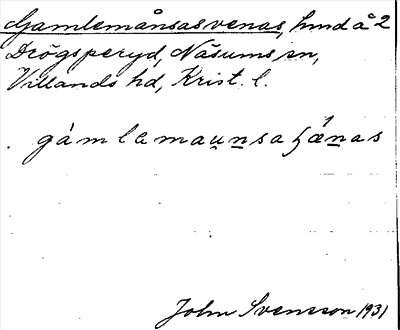 Gamlemånsasvenas, hmd å 2
Drögsperyd, Näsums sn,
Villands hd, Krist. l.
gámlemau̱ṉsa
John Svensson 1931